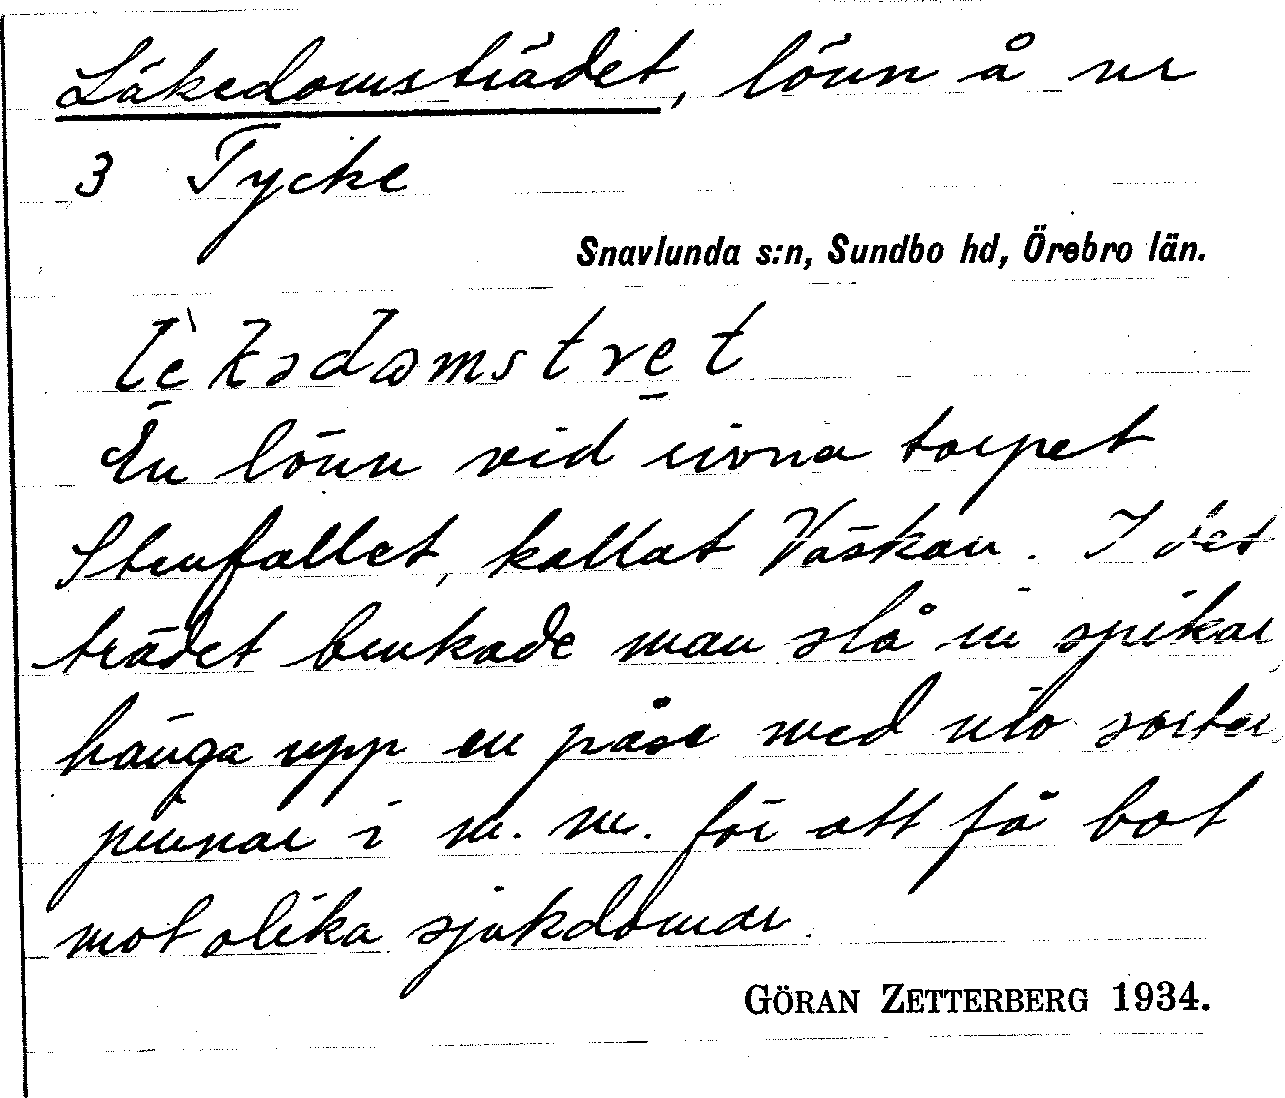 Läkedomsträdet, lönn å nr
3 Tycke
Snavlunda s:n, Sundbo hd, Örebro län.
lè̱kədωmstre̱t
En lönn vid rivna torpet
Stenfallet, kallat Väskan. I det
trädet brukade man slå in spikar,
hänga upp en påse med nio sorter
pinnar i m. m. för att få bot
mot olika sjukdomar.
GÖRAN ZETTERBERG 1934.